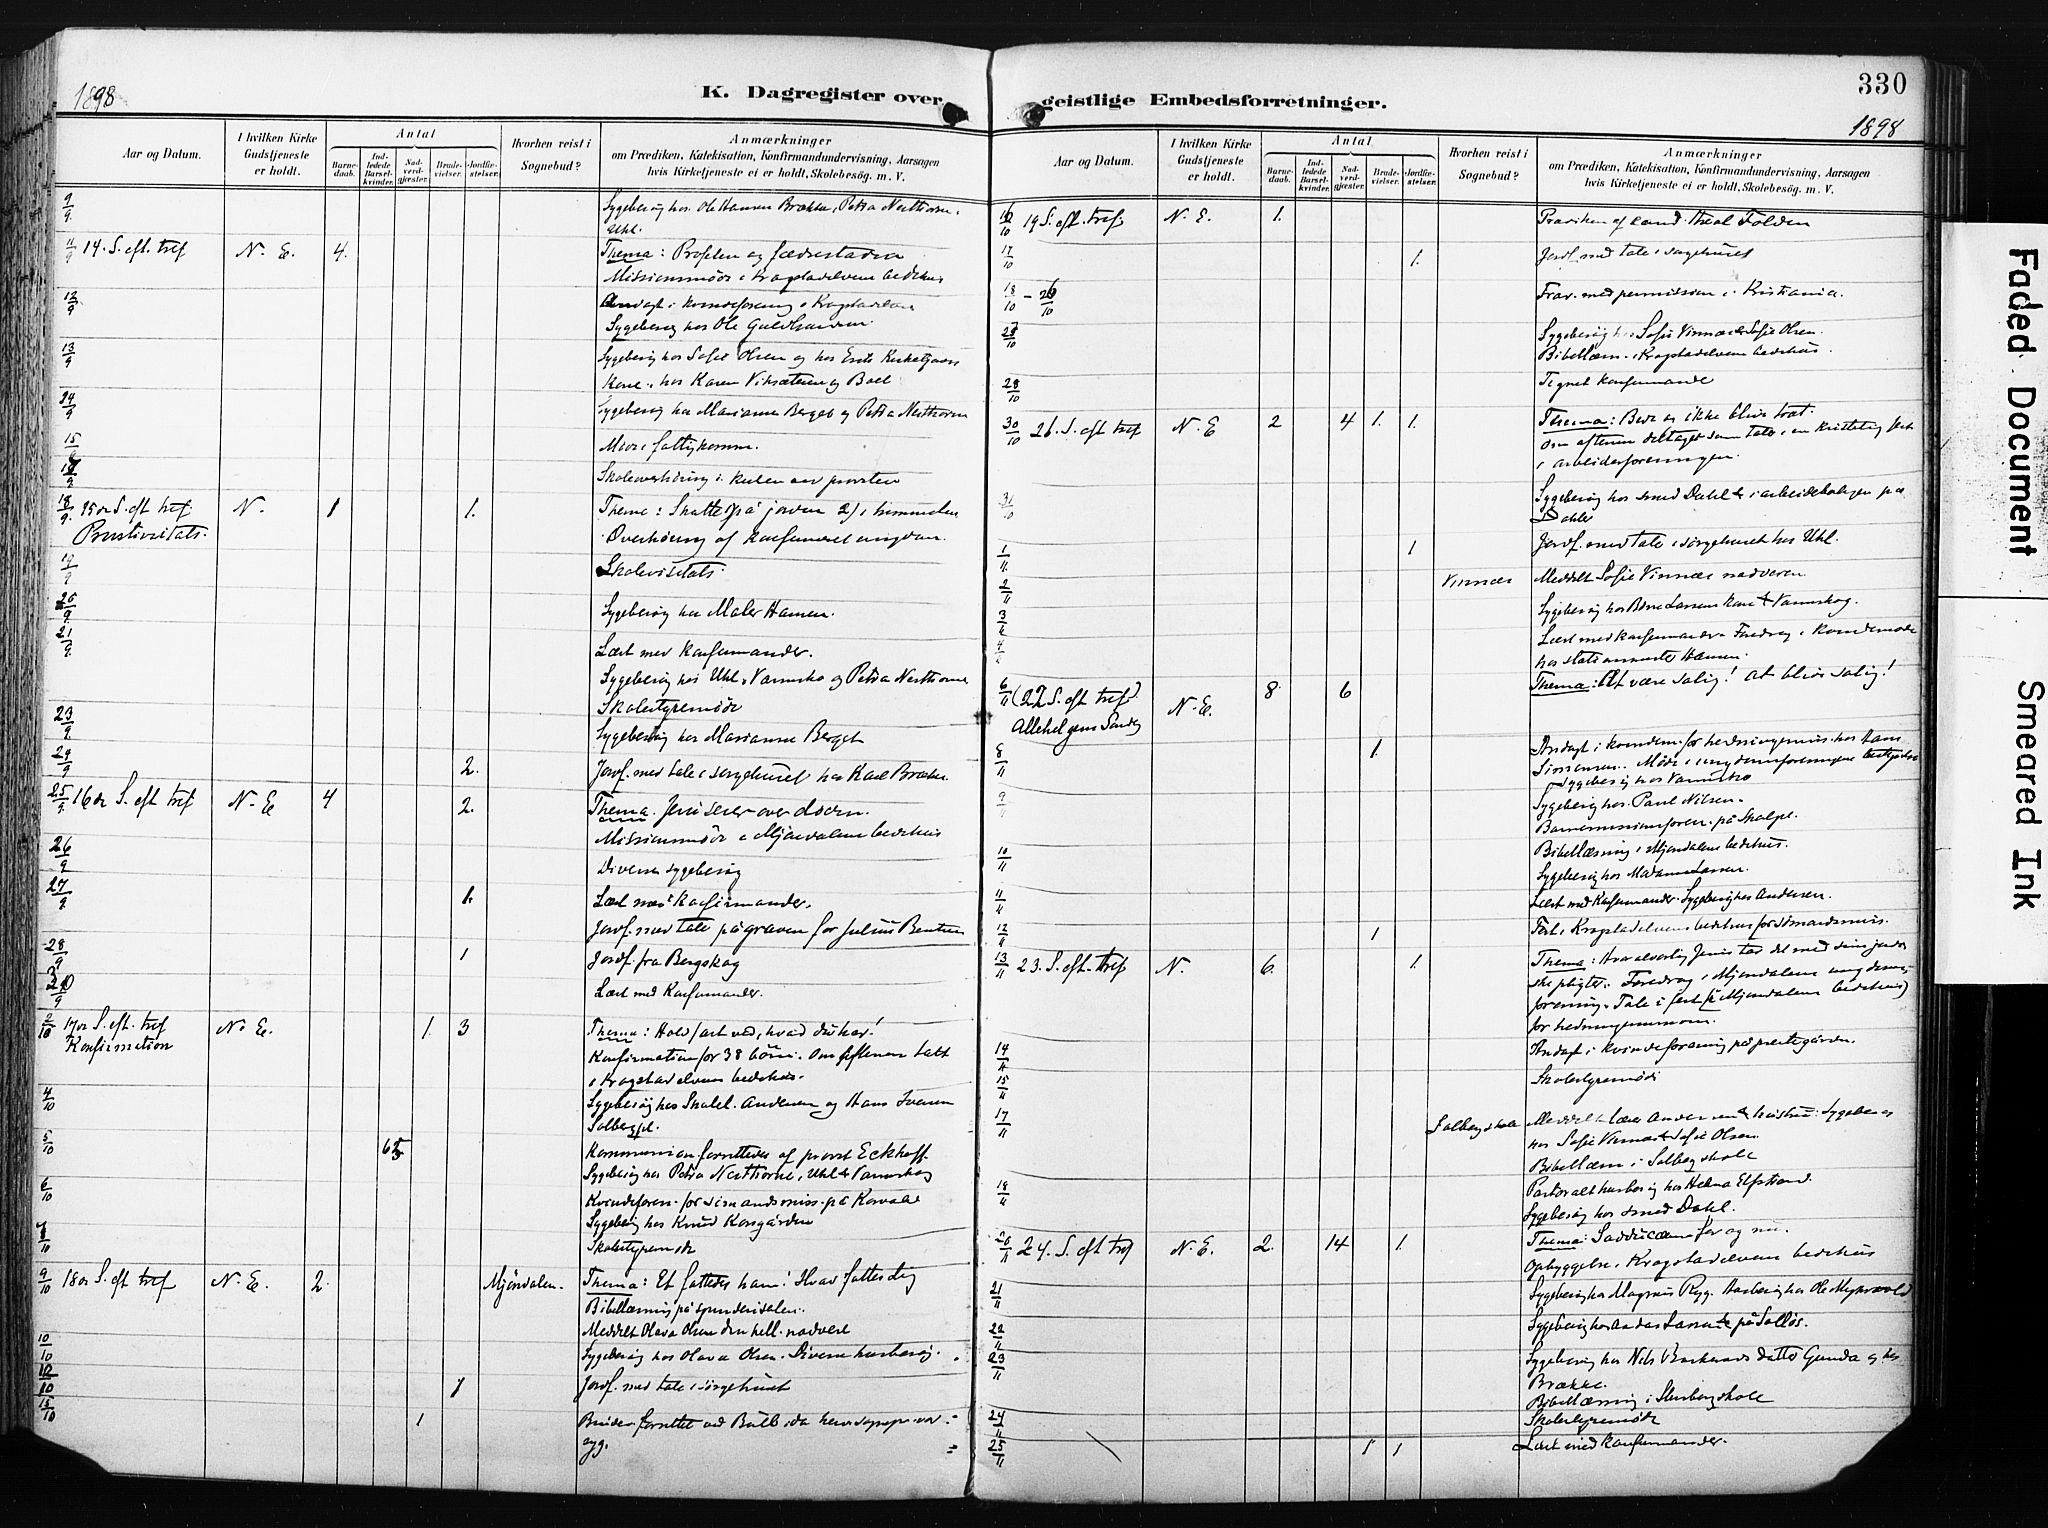 1898
K. Dagregister over
Aar og Datum.
I hvilken Kirke Gudstjeneste er holdt.
Antal
Barne-daab.
Ind-ledede Barsel-kvinder.
Nad-verd-gjester.
Brude-vielser.
Jordfæ-stelser.
Hvorhen reist i Sognebud?
Anmærkninger
om Prædiken, Katekisation, Konfirmandundervisning, Aarsagen
hvis Kirketjeneste ei er holdt, Skolebesøg. m. V.
9/9 Sygebesøg hos Ole Hansen Brække, Petra Nesthorne,
Uhl.
11/9 14. S. eft. tref N. E. 4. Thema: Profeten og fædrestaden
Missionsmøde i Krogstadelvens bedehus
12/9 Andagt i kvindeforening i Krogstadelven
Sygebesøg hos Ole Guldhaven
13/9 Sygebesøg hos Sofie Olsen og hos Erik Kirkegaards
Kone, hos Karen Viksæteren og Boel
14/9 Sygebesøg hos Marianne Berget og Petra Nesthorne
15/9 Møde i fattigkomm.
Skoleoverhøring i kirken ved provsten
18/9 15de S. eft tref. N. 1 1. Thema: Skatte på jorden 2) i himmelen
Provstivisitats. Overhøring af konfirmeret ungdom.
19/9 Skolevisitats.
20/9 Sygebesøg hos Maler Hansen.
21/9 Læst med konfirmander.
Sygebesøg hos Uhl, Vamnsko og Petra Nesthorne
Skolestyremøde
23/9 Sygebesøg hos Marianne Berget
24/9 2. Jordf. med tale i sørgehuset hos Karl Bræken
25/9 16de S. eft tref N. E 4 2. Thema. Jesu seier over døden.
Missionsmøde i Mjøndalens bedehus
26/9 Diverse sygebesøg
27/9 1. Læst med konfirmander.
Jordf. med tale på graven for Julius Bentsen
28/9 1 Jordf. fra Bergskog
Læst med konfirmander.
2/10 17de S. eft. tref N. E. 1. 3 Thema: Hold fast ved, hvad du har!
Konfirmation Konfirmation for 38 børn. Om aftenen talt
i Krogstadelvens bedehus.
4/10 Sygebesøg hos Skolel. Andersen og Hans Iversen
Solbergpl.
5/10 Kommunion forrettedes af provst Eckhoff.
Sygebesøg hos Petra Nesthorne, Uhl & Vamnskog
6/10 Kvindeforen. for sømandsmiss. på Korvald
Sygebesøg hos Knud Korsgården
8/10 Skolestyremøde
9/10 18de S. eft tref N. E. 2. Mjøndalen. Thema: Et fattedes ham! Hvad fattes dig
Bibellæsning på spinderisalen.
Meddelt Olava Olsen den hell. nadvere
10/10 Sygebesøg hos Olava Olsen. Diverse husbesøg.
12/10 1 Jordf. med tale i sørgehuset
15/10 1 Brudev. forrettet ved Bull, da hans sognepr. var
syg.
330
1898
geistlige Embedsforretninger.
Aar og Datum.
I hvilken Kirke Gudstjeneste er holdt.
Antal
Barne-daab.
Ind-ledede Barsel-kvinder.
Nad-verd-gjester.
Brude-vielser.
Jordfæ-stelser.
Hvorhen reist i Sognebud?
Anmærkninger
om Prædiken, Katekisation, Konfirmandundervisning, Aarsagen
hvis Kirketjeneste ei er holdt, Skolebesøg. m. V.
16/10 19 S. eft. tref. N. E. 1. Prædiken af cand. theol Folden
17/10 1. Jordf med tale i sørgehuset
18/10 - 26/10 Frav. med permission i Kristiania.
27/10 Sygebesøg hos Sofie Vinnæs & Sofie Olsen.
Bibellæsn. i Krogstadelvens bedehus.
28/10 Tegnet konfirmander
30/10 26. S. eft tref N. E 2 4 1. 1. Thema: Bede og ikke blive træt.
Om aftenen deltaget som taler i en kristelig fest
i arbeiderforeningen.
31/10 Sygebesøg hos smed Dahl & i arbeiderboligen på
Dahler
1/11 1 Jordf. med tale i sørgehuset hos Uhl.
2/11 Vinnæs Meddelt Sofie Vinnæs nadveren
3/11 Sygebesøg hos Børre Larsens kone & Vamnskog.
4/11 Læst med konfirmander. Foredrag i kvindemøde
hos stationsmester Hansen.
6/11 (22 S. eft tref) N. E. 8. 6 Thema: At være salig! At blive salig!
Allehelgens Søndag
8/11 1. Andagt i kvindem. for hedningemis. hos Hans
Simensen. Møde i ungdomsforeningens bestyrelse
Sygebesøg hos Vamnsko
9/11 Sygebesøg hos Paul Nilsen.
Barnemissionforen. på Skalpl.
10/11 Bibellæsning i Mjøndalens bedehus.
Sygebesøg hos Madam Larsen.
11/11 Læst med konfirmander. Sygebesøg hos Andersen.
12/11 1 Fest i Krogstadelvens bedehus for sømandsmis.
13/11 23. S. eft. tref N. 6. 1. Thema: Hvor alvorlig Jesus tar det med sine jordi
ske pligter. Foredrag i Mjøndalens ungdoms-
forening. Tale i fest (i Mjøndalens bedehus)
for hedningemissionen.
14/11 Andagt i kvindeforening på prestegården.
15/11 Skolestyremøde
17/11 Solberg skole Meddelt lærer Andersen & hustru. Sygebesøg
hos Sofie Vinnæs & Sofie Olsen.
Bibellæsn i Solberg skole
18/11 Pastoralt husbesøg hos Helma Elfstrand.
Sygebesøg hos smed Dahl.
20/11 24. S. eft tref N. E. 2. 14 1. Thema: Sadducæere før og nu.
Opbyggelse i Krogstadelvens bedehus
21/11 Sygebesøg hos Magnus Rygg. Husbesøg hos Ole Myhrvold
22/11 Sygebesøg hos Anders Larsen & på Solløs.
23/11 Sygebesøg hos Nils Bakkeruds datter Gunda og hos
Brække.
Bibellæsning i Stenberg skole
24/11 Skolestyremøde
25/11 1 1. Læst med konfirmander.
Faded Document
Smeared Ink